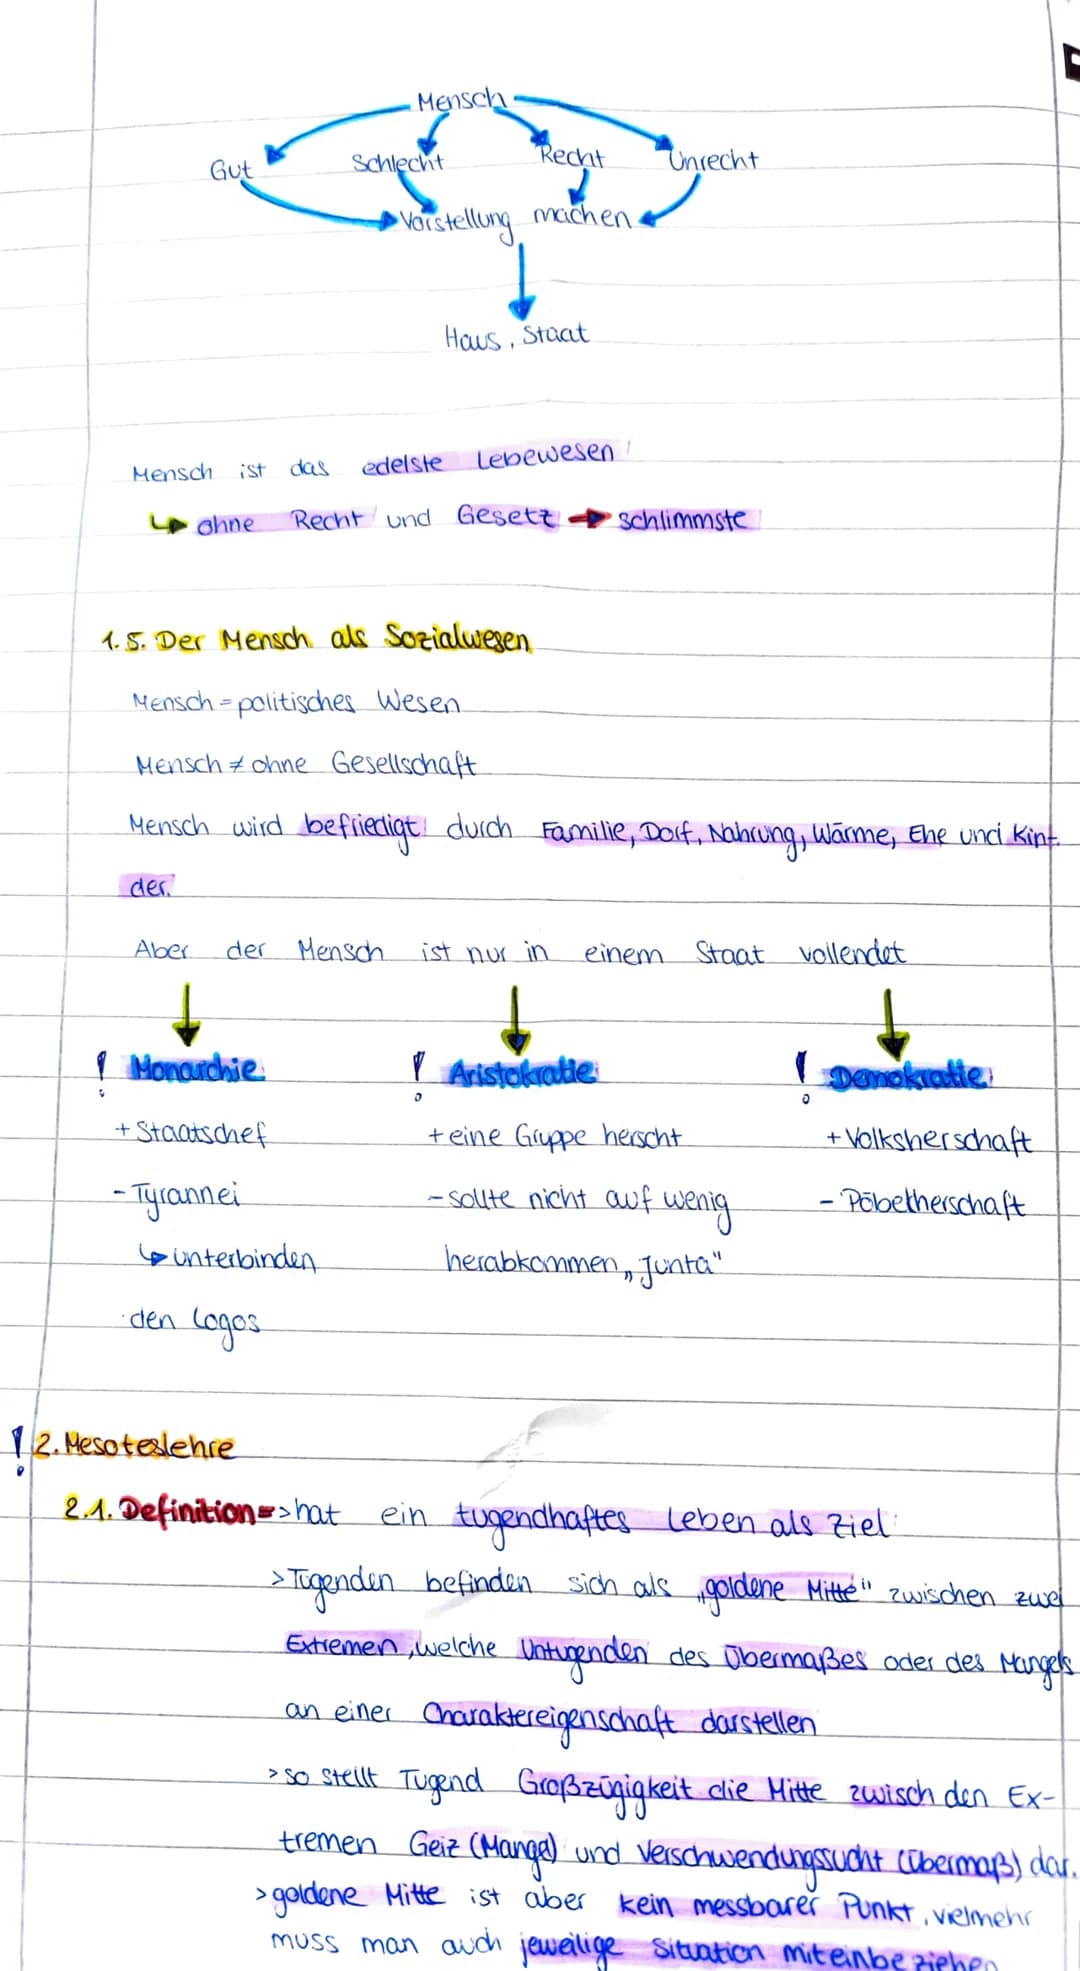 Mensch
Gut Schlecht Recht Unrecht
Vorstellung machen
Haus, Staat
Mensch ist das edelste Lebewesen!
↳ ohne Recht und Gesetz → schlimmste
1.5. Der Mensch als Sozialwesen
Mensch = politisches Wesen
Mensch ≠ ohne Gesellschaft
Mensch wird befriedigt durch Familie, Dorf, Nahrung, Wärme, Ehe und Kin-
der.
Aber der Mensch ist nur in einem Staat vollendet
! Monarchie ! Aristokratie ! Demokratie
+ Staatschef + eine Gruppe herscht + Volksherschaft
- Tyrannei - sollte nicht auf wenig - Pöbelherschaft
↳ unterbinden herabkommen „Junta"
den Logos
! 2. Mesoteslehre
2.1. Definition => hat ein tugendhaftes Leben als Ziel
> Tugenden befinden sich als „goldene Mitte" zwischen zwei
Extremen, welche Untugenden des Übermaßes oder des Mangels
an einer Charaktereigenschaft darstellen
> so stellt Tugend Großzügigkeit die Mitte zwisch den Ex-
tremen Geiz (Mangel) und Verschwendungssucht (Übermaß) dar.
> goldene Mitte ist aber kein messbarer Punkt, vielmehr
muss man auch jeweilige Situation miteinbeziehen